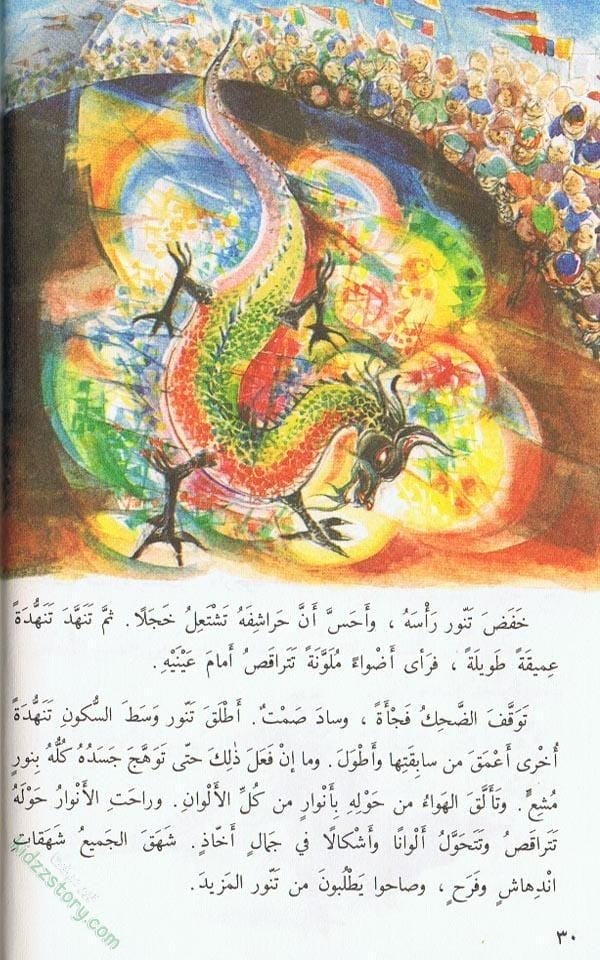 خَفَضَ تَنّور رَأْسَهُ ، وأَحَسَّ أَنَّ حَراشِفَهُ تَشْتَعِلُ خَجَلًا . ثُمَّ تَنَهَّدَ تَنَهُّدَةً
عَمِيقَةً طَوِيلَةً ، فَرَأى أَضْواءً مُلَوَّنَةً تَتَراقَصُ أَمامَ عَيْنَيْهِ.
تَوَقَّفَ الضَّحِكُ فَجْأَةً ، وسادَ صَمْتٌ. أَطْلَقَ تَنّور وَسَطَ السُّكونِ تَنَهُّدَةً
أُخْرى أَعْمَقَ من سابِقَتِها وأَطْوَلَ. وما إنْ فَعَلَ ذٰلِكَ حتّى تَوَهَّجَ جَسَدُهُ كُلُّهُ بِنورٍ
مُشِعٍّ. وتَأَلَّقَ الهَواءُ من حَوْلِهِ بِأَنْوارٍ من كُلِّ الأَلْوانِ. وراحَتِ الأَنْوارُ حَوْلَهُ
تَتَراقَصُ وتَتَحَوَّلُ أَلْوانًا وأَشْكالًا في جَمالٍ أَخّاذٍ. شَهَقَ الجَميعُ شَهَقاتِ
انْدِهاشٍ وفَرَحٍ ، وصاحوا يَطْلُبونَ من تَنّور المَزيدَ.
٣٠
kidzzstory.com